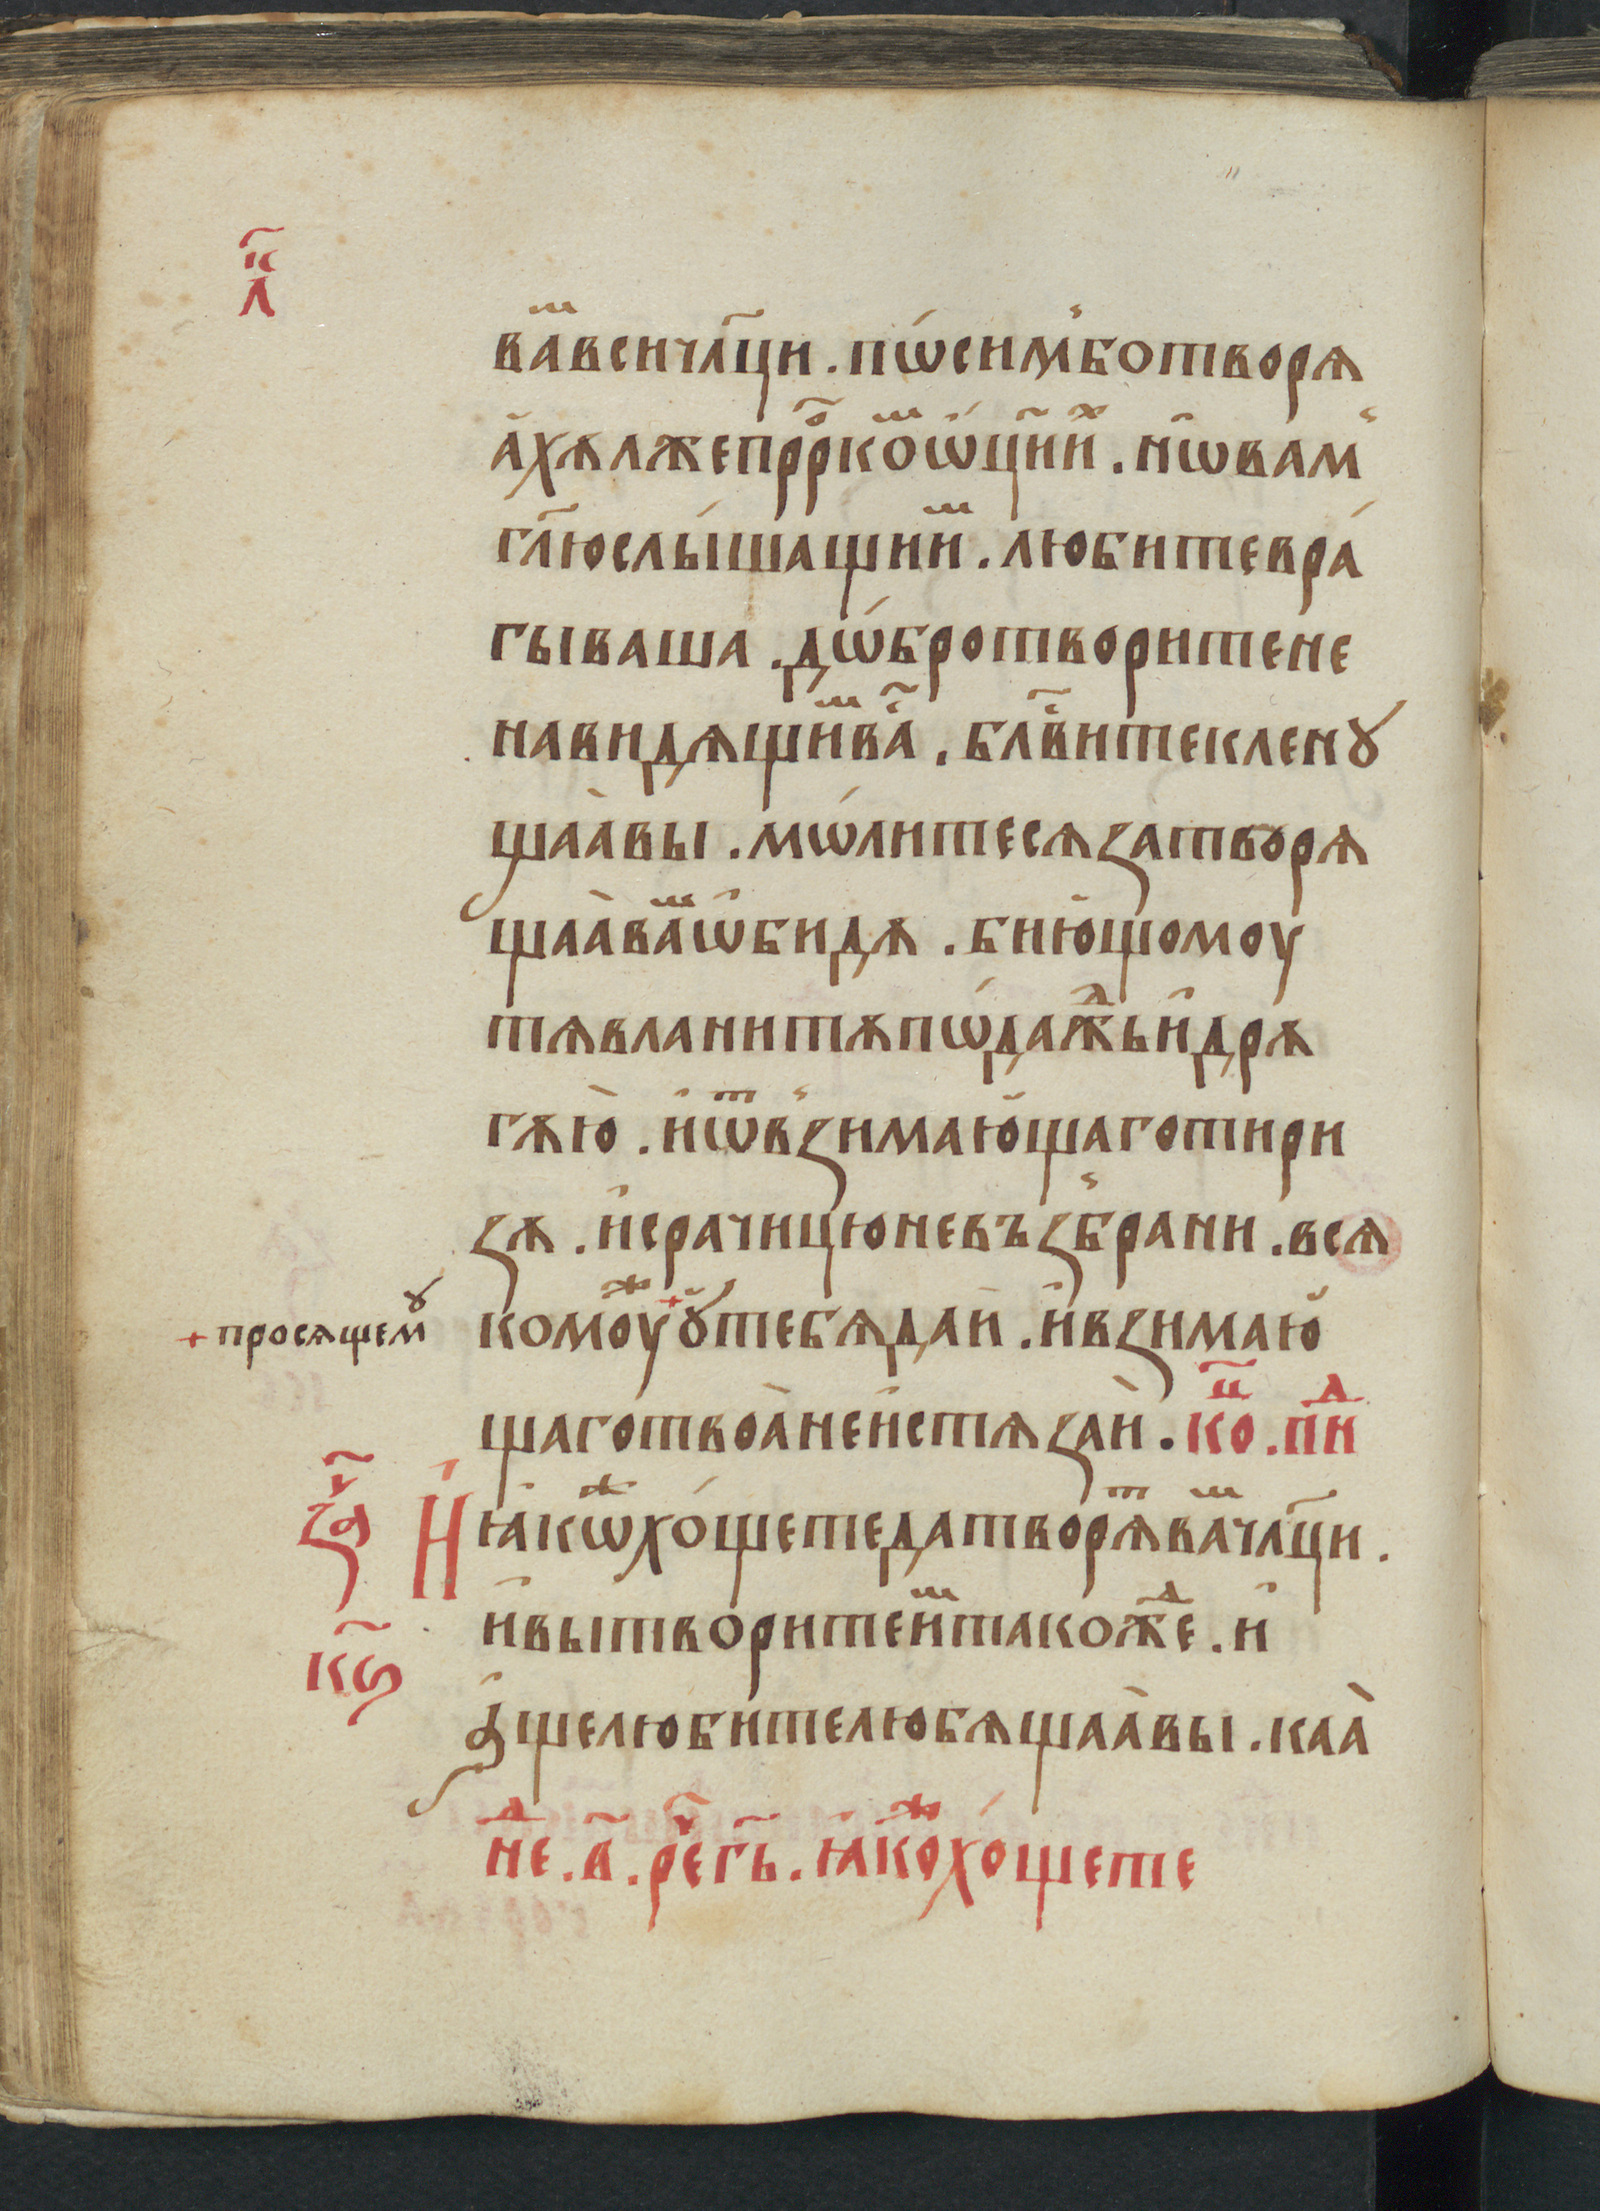 л҃
ваⷨ вси члци҃ . пѡ́симⸯботворѧ
а҆хѫ лжепрⷪ҇ркоⷨ ѡ҆ц҃иⷯи . нѡ҆вамⸯ
гл҃ю слы́шащиⷨи . любитеврá
гываша . дѡ́бротворитене
навидѧщиⷨ ваⷭ҇ . блⷭ҇витекленꙋ
щаа̀вы . мѡ́литесѧ ꙁатворѧ
щаа̀ваⷨ ѡ҆бидѫ . бию҆щомоу
тѧвланитѫпѡ́даⷤжьи҆дрꙋ
гꙋю̀ . и҆ѿвⸯꙁимаю҆щаготири
ꙁꙋ . и҆срачицюневъꙁⸯбрани . всѧ
комоуⷤ ꙋ҆тебѧдаи . и҆вꙁимаю҆
+ просѧщемꙋ
щаготвоа̀неи҆стѧꙁаи . коⷰ . пнⷣ
И҆ ꙗ҆коⷤ хо́щетедатворѧⷮ ваⷨ члци҃ .
и҆вытворитеи҆ⷨтакоⷤде . и҆
а҆щелюбителюбѧщаа̀вы . каа̀
нⷣе . в҃ . реⷱ҇ гь҃ . ꙗ҆коⷤхо́щете
ꙁаⷱ҇
кѕ҃